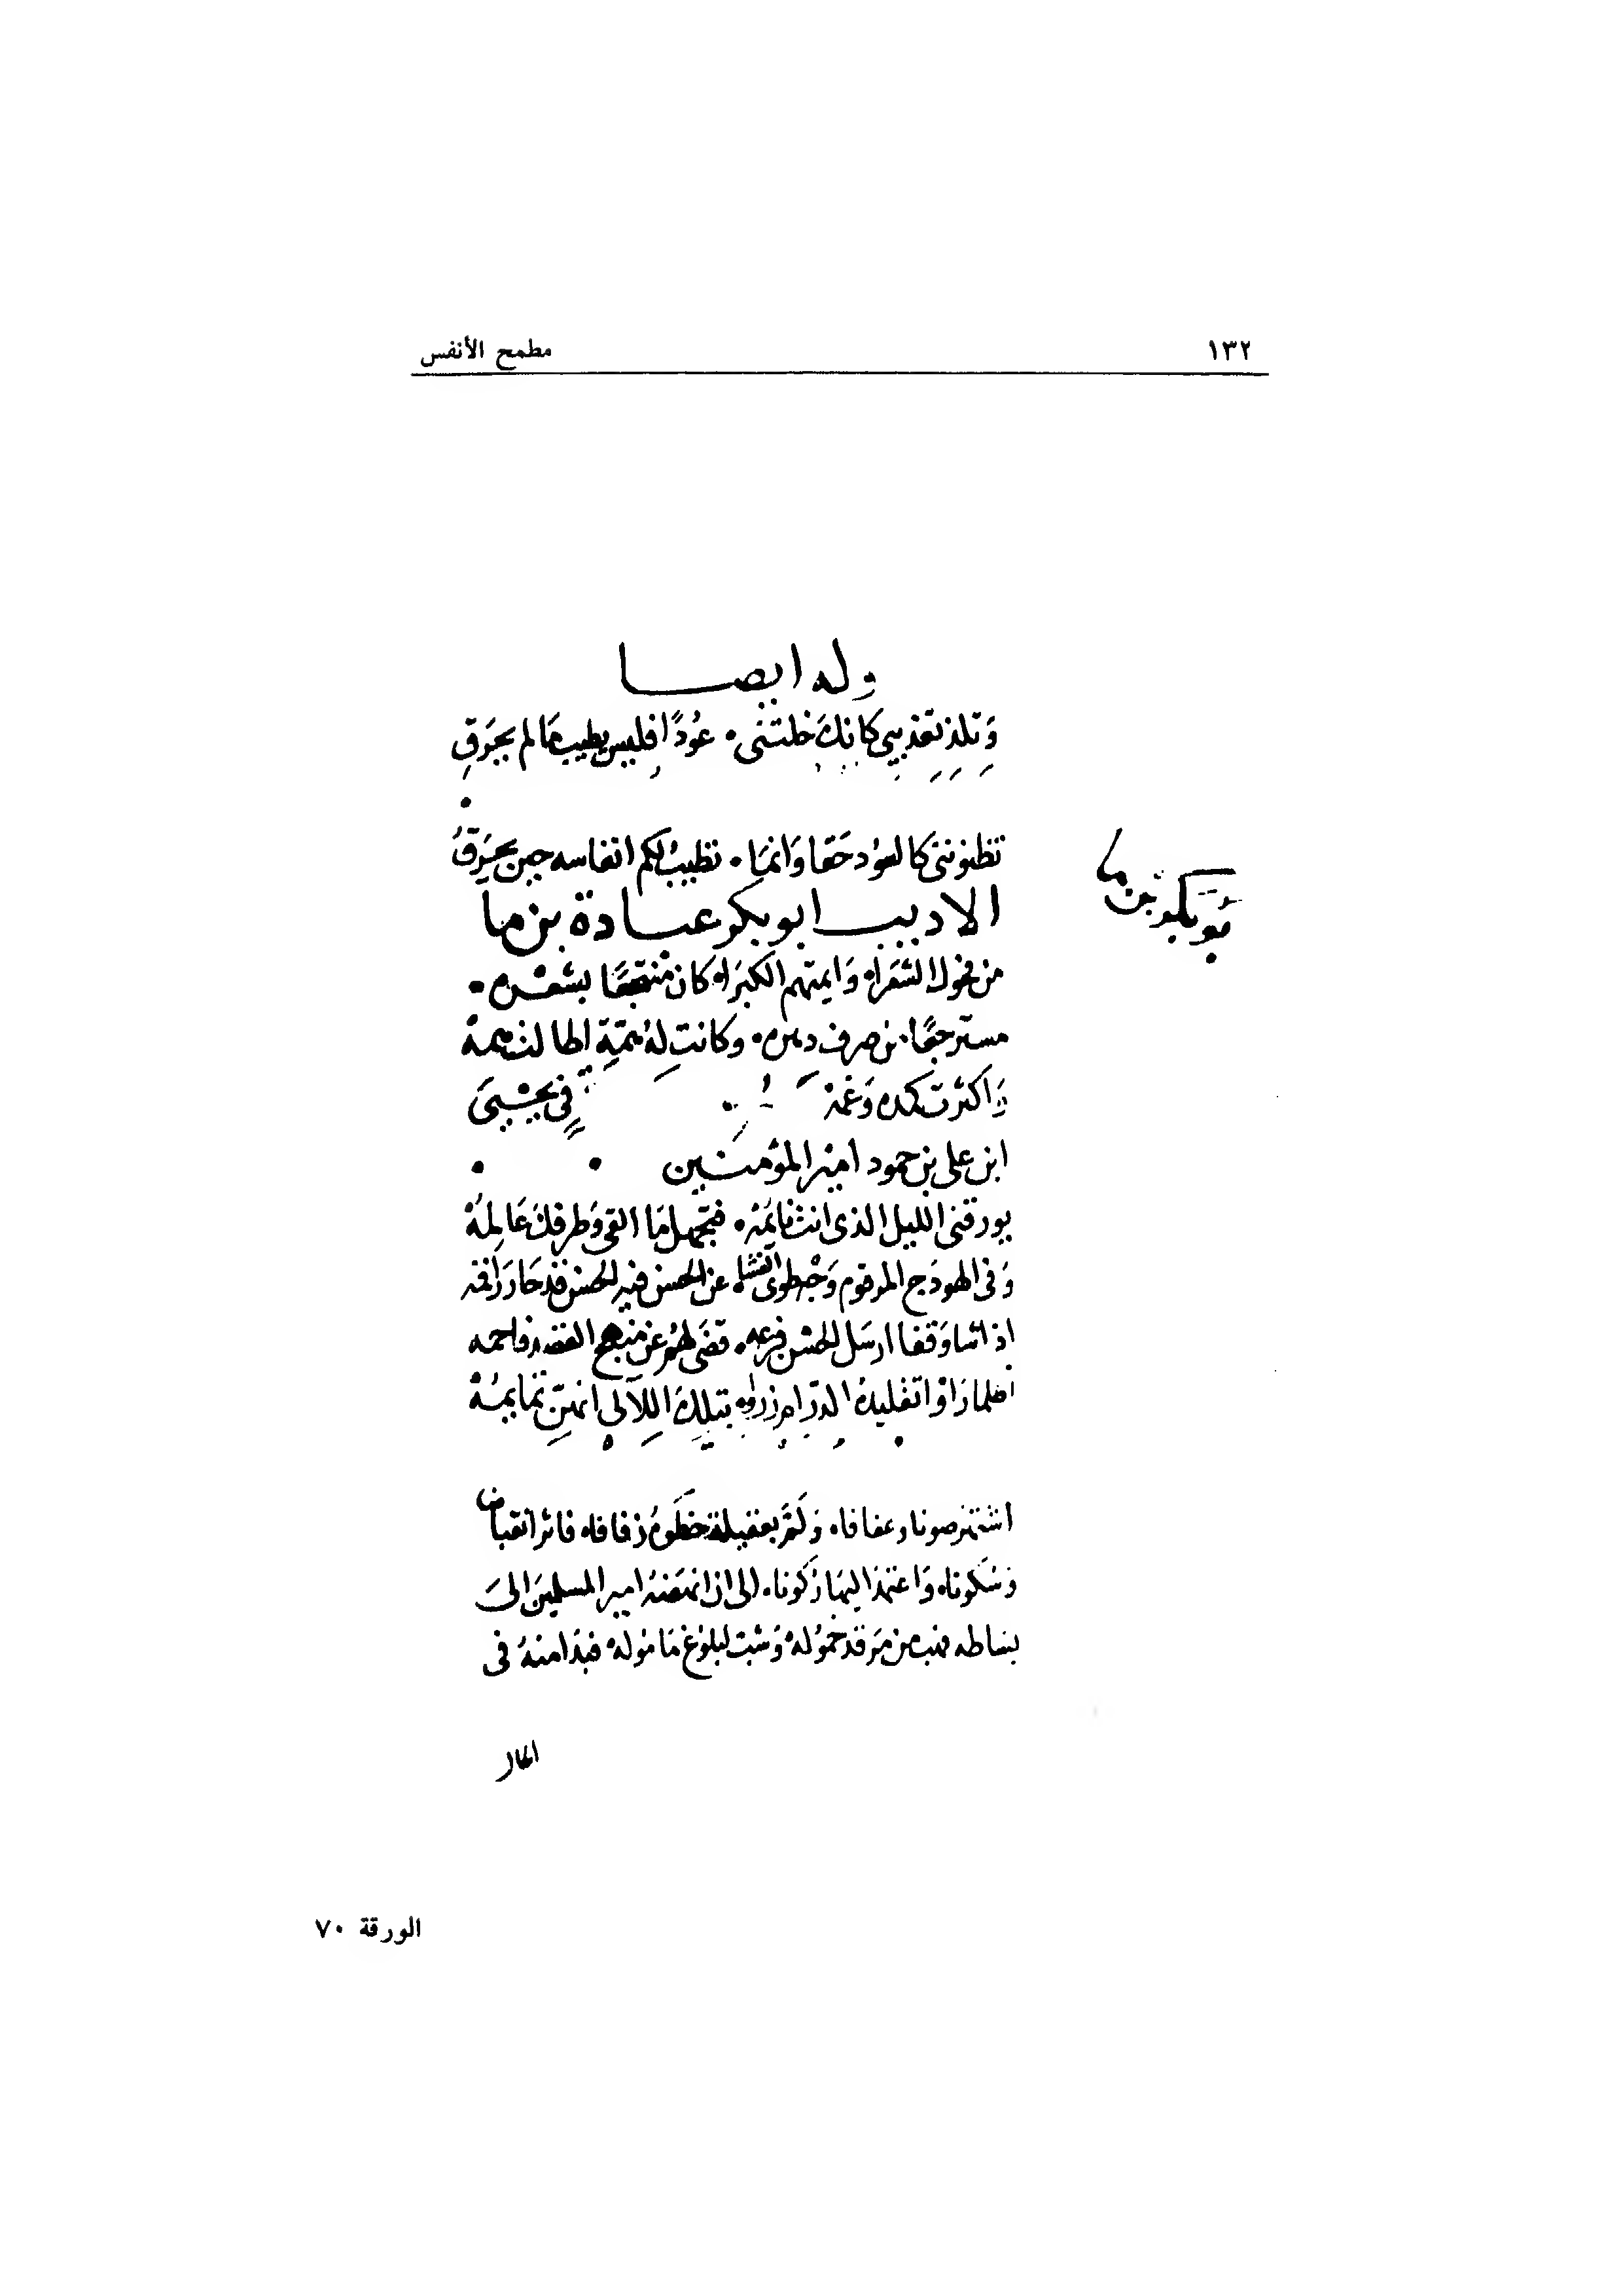 ١٣٢
مطمح الأنفس
وله ايضا
وَتلذ تعذيبى كانك خلتنى • عُودًا فليس يطيب ما لم يحرق
تظنوننى كالعود حقا وانما • تطيب لكم انفاسه حين يحرق
الاديب ابو بكر عبادة بن ما
من فحول الشعراء وايمتهم الكبراء كان منتجعًا بشعره •
مسترجعًا من صرف دهره • وكانت له همة اطالت همه
واكثرت كمده وغمه في يحيى
ابن على بن حمود امير المؤمنين
يورقنى الليل الذى انت نايمه • فتجهل ما القى وطرفك عالمه
وفى الهودج المرقوم وجه طوى الحشا عن الحسن فيه الحسن قد حار راقمه
اذا شا وقفا ارسل الحسن فرعه • فضى لهم عن منهج القصد فاحمه
اظلما راوا تقليده الدر ام زروا بتلك اللآلى انهن تمايمه
اشتهر صونا وعفافا • ولم بعقيلة حظوه زفافا • فاثر انقباضا
وسكونا • واعتمد اليها ركونا • الى ان انهضه امير المسلمين الى
بساطه فهب من مرقد خموله وشب لبلوغ ماموله فبدا منه فى
الحال
الورقة ٧٠